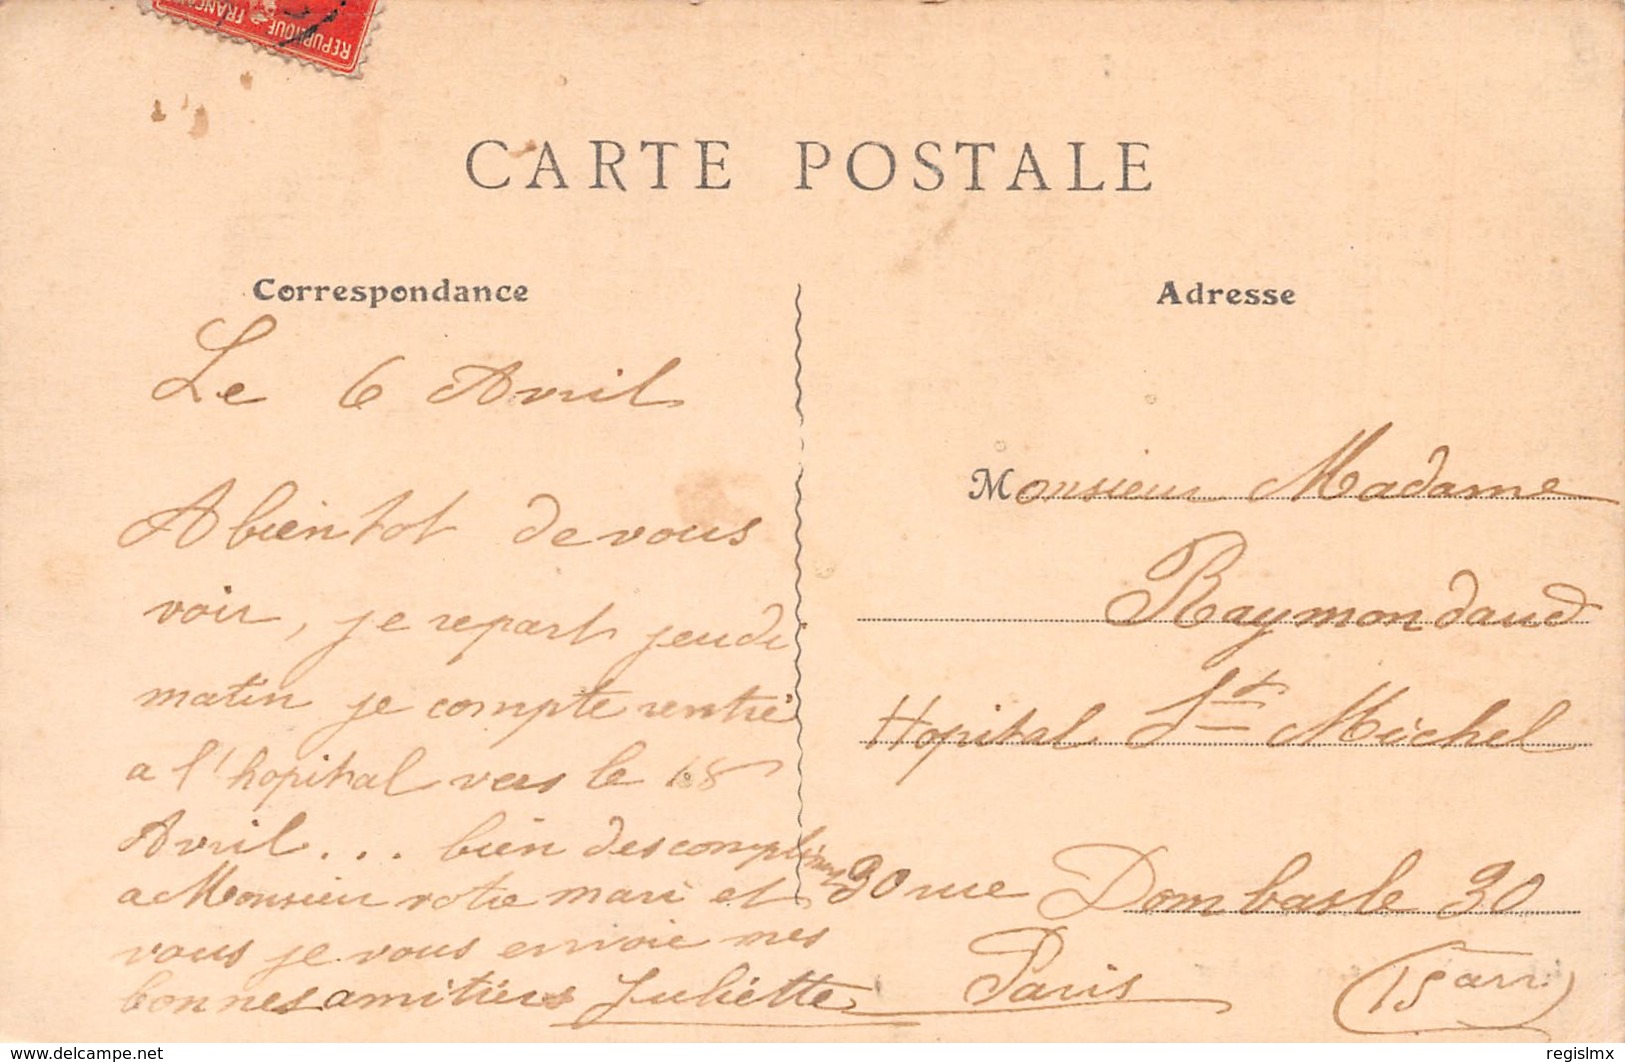 REPUBLIQUE FRANÇ
CARTE POSTALE
Correspondance
Le 6 Avril
A bientot de vous
voir, je repart jeudi
matin je compte rentré
a l'hopital vers le 18
Avril... bien des compliments
a Monsieur votre mari et
vous je vous envoie mes
bonnes amitiés Juliette
Adresse
Monsieur Madame
Raymondaud
Hopital St Michel
30 rue Dombasle 30
Paris (15 arr.)
delcampe.net
regislmx